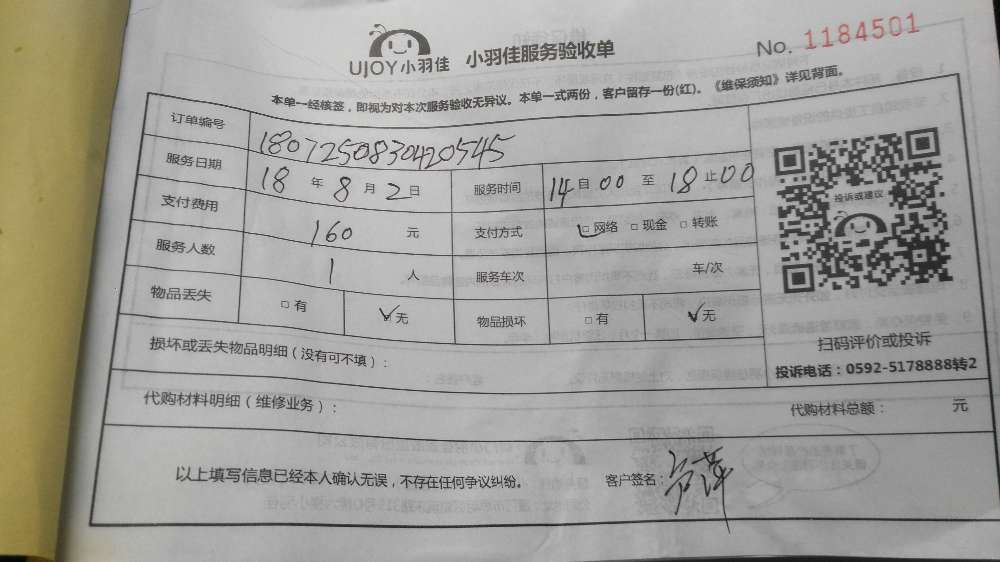 UJOY小羽佳 小羽佳服务验收单 No. 1184501
本单一经核签，即视为对本次服务验收无异议。本单一式两份，客户留存一份(红)。《维保须知》详见背面。
订单编号 18072508304205​45
服务日期 18 年 8 月 2 日 服务时间 14 自 00 至 18 止 00
支付费用 160 元 支付方式 □网络 □现金 □转账
服务人数 1 人 服务车次 车/次
物品丢失 □有 □无 物品损坏 □有 □无
损坏或丢失物品明细（没有可不填）：
代购材料明细（维修业务）： 代购材料总额： 元
以上填写信息已经本人确认无误，不存在任何争议纠纷。 客户签名：
投诉或建议
扫码评价或投诉
投诉电话：0592-5178888转2